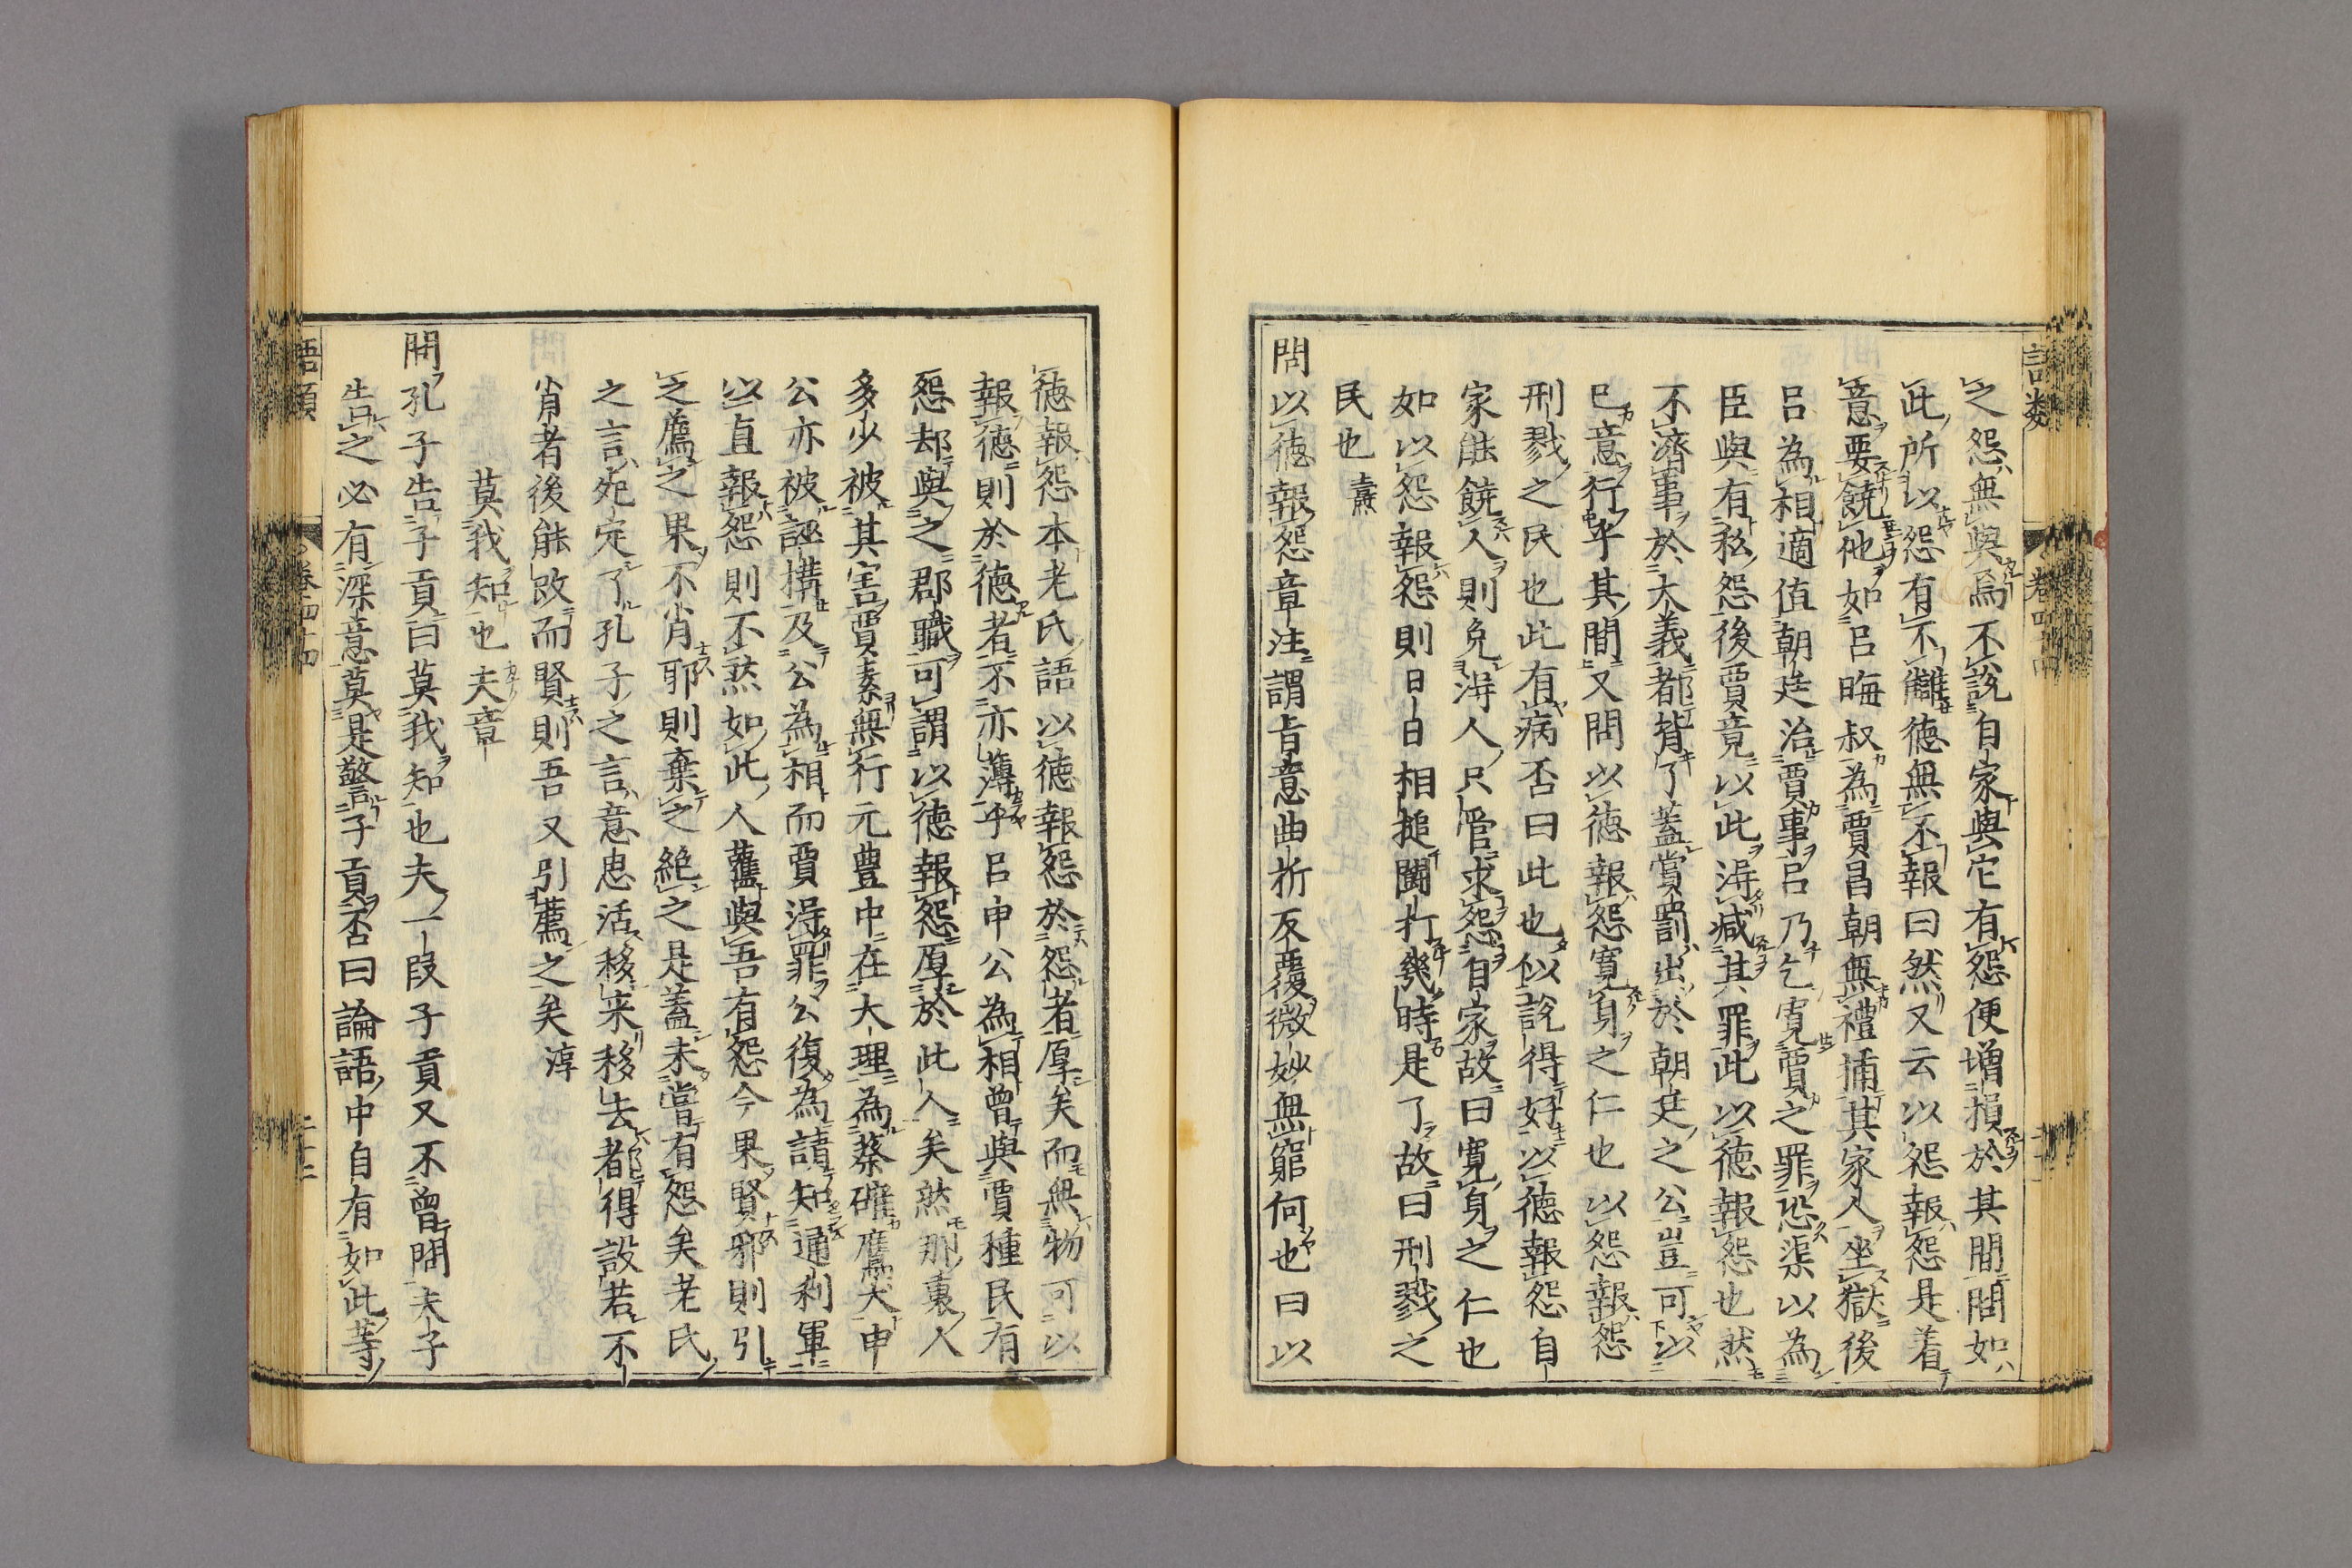 語類
卷四十四
之怨無與焉不說自家與它有怨便增損於其間問如
此所以怨有不讎德無不報曰然又云以怨報怨是着
意要饒他如呂晦叔為賈昌朝無禮捕其家人坐獄後
呂為相適值朝廷治賈事呂乃乞寬賈之罪恐渠以為
臣與有私怨後賈竟以此得減其罪此以德報怨也然
不濟事於大義都背了蓋賞罰出於朝廷之公豈可以
已意行乎其間又問以德報怨寬身之仁也以怨報怨
刑戮之民也此有病否曰此也似說得好以德報怨自
家能饒人則免得人只管求怨自家故曰寬身之仁也
如以怨報怨則日日相搥鬬打幾時是了故曰刑戮之
民也 燾
問以德報怨章注謂旨意曲折反覆微妙無窮何也曰以
德報怨本老氏語以德報怨於怨者厚矣而無物可以
報德則於德者不亦薄乎呂申公為相曾與賈種民有
怨却與之郡職可謂以德報怨厚於此人矣然那裏人
多少被其害賈素無行元豊中在大理為蔡確鷹犬申
公亦被誣構及公為相而賈得罪公復為請知通利軍
以直報怨則不然如此人舊與吾有怨今果賢邪則引
之薦之果不肖耶則棄之絕之是蓋未嘗有怨矣老氏
之言死定了孔子之言意思活移来移去都得設若不
肖者後能改而賢則吾又引薦之矣 淳
莫我知也夫章
問孔子告子貢曰莫我知也夫一段子貢又不曾問夫子
告之必有深意莫是警子貢否曰論語中自有如此等
語類
卷四十四
二十二